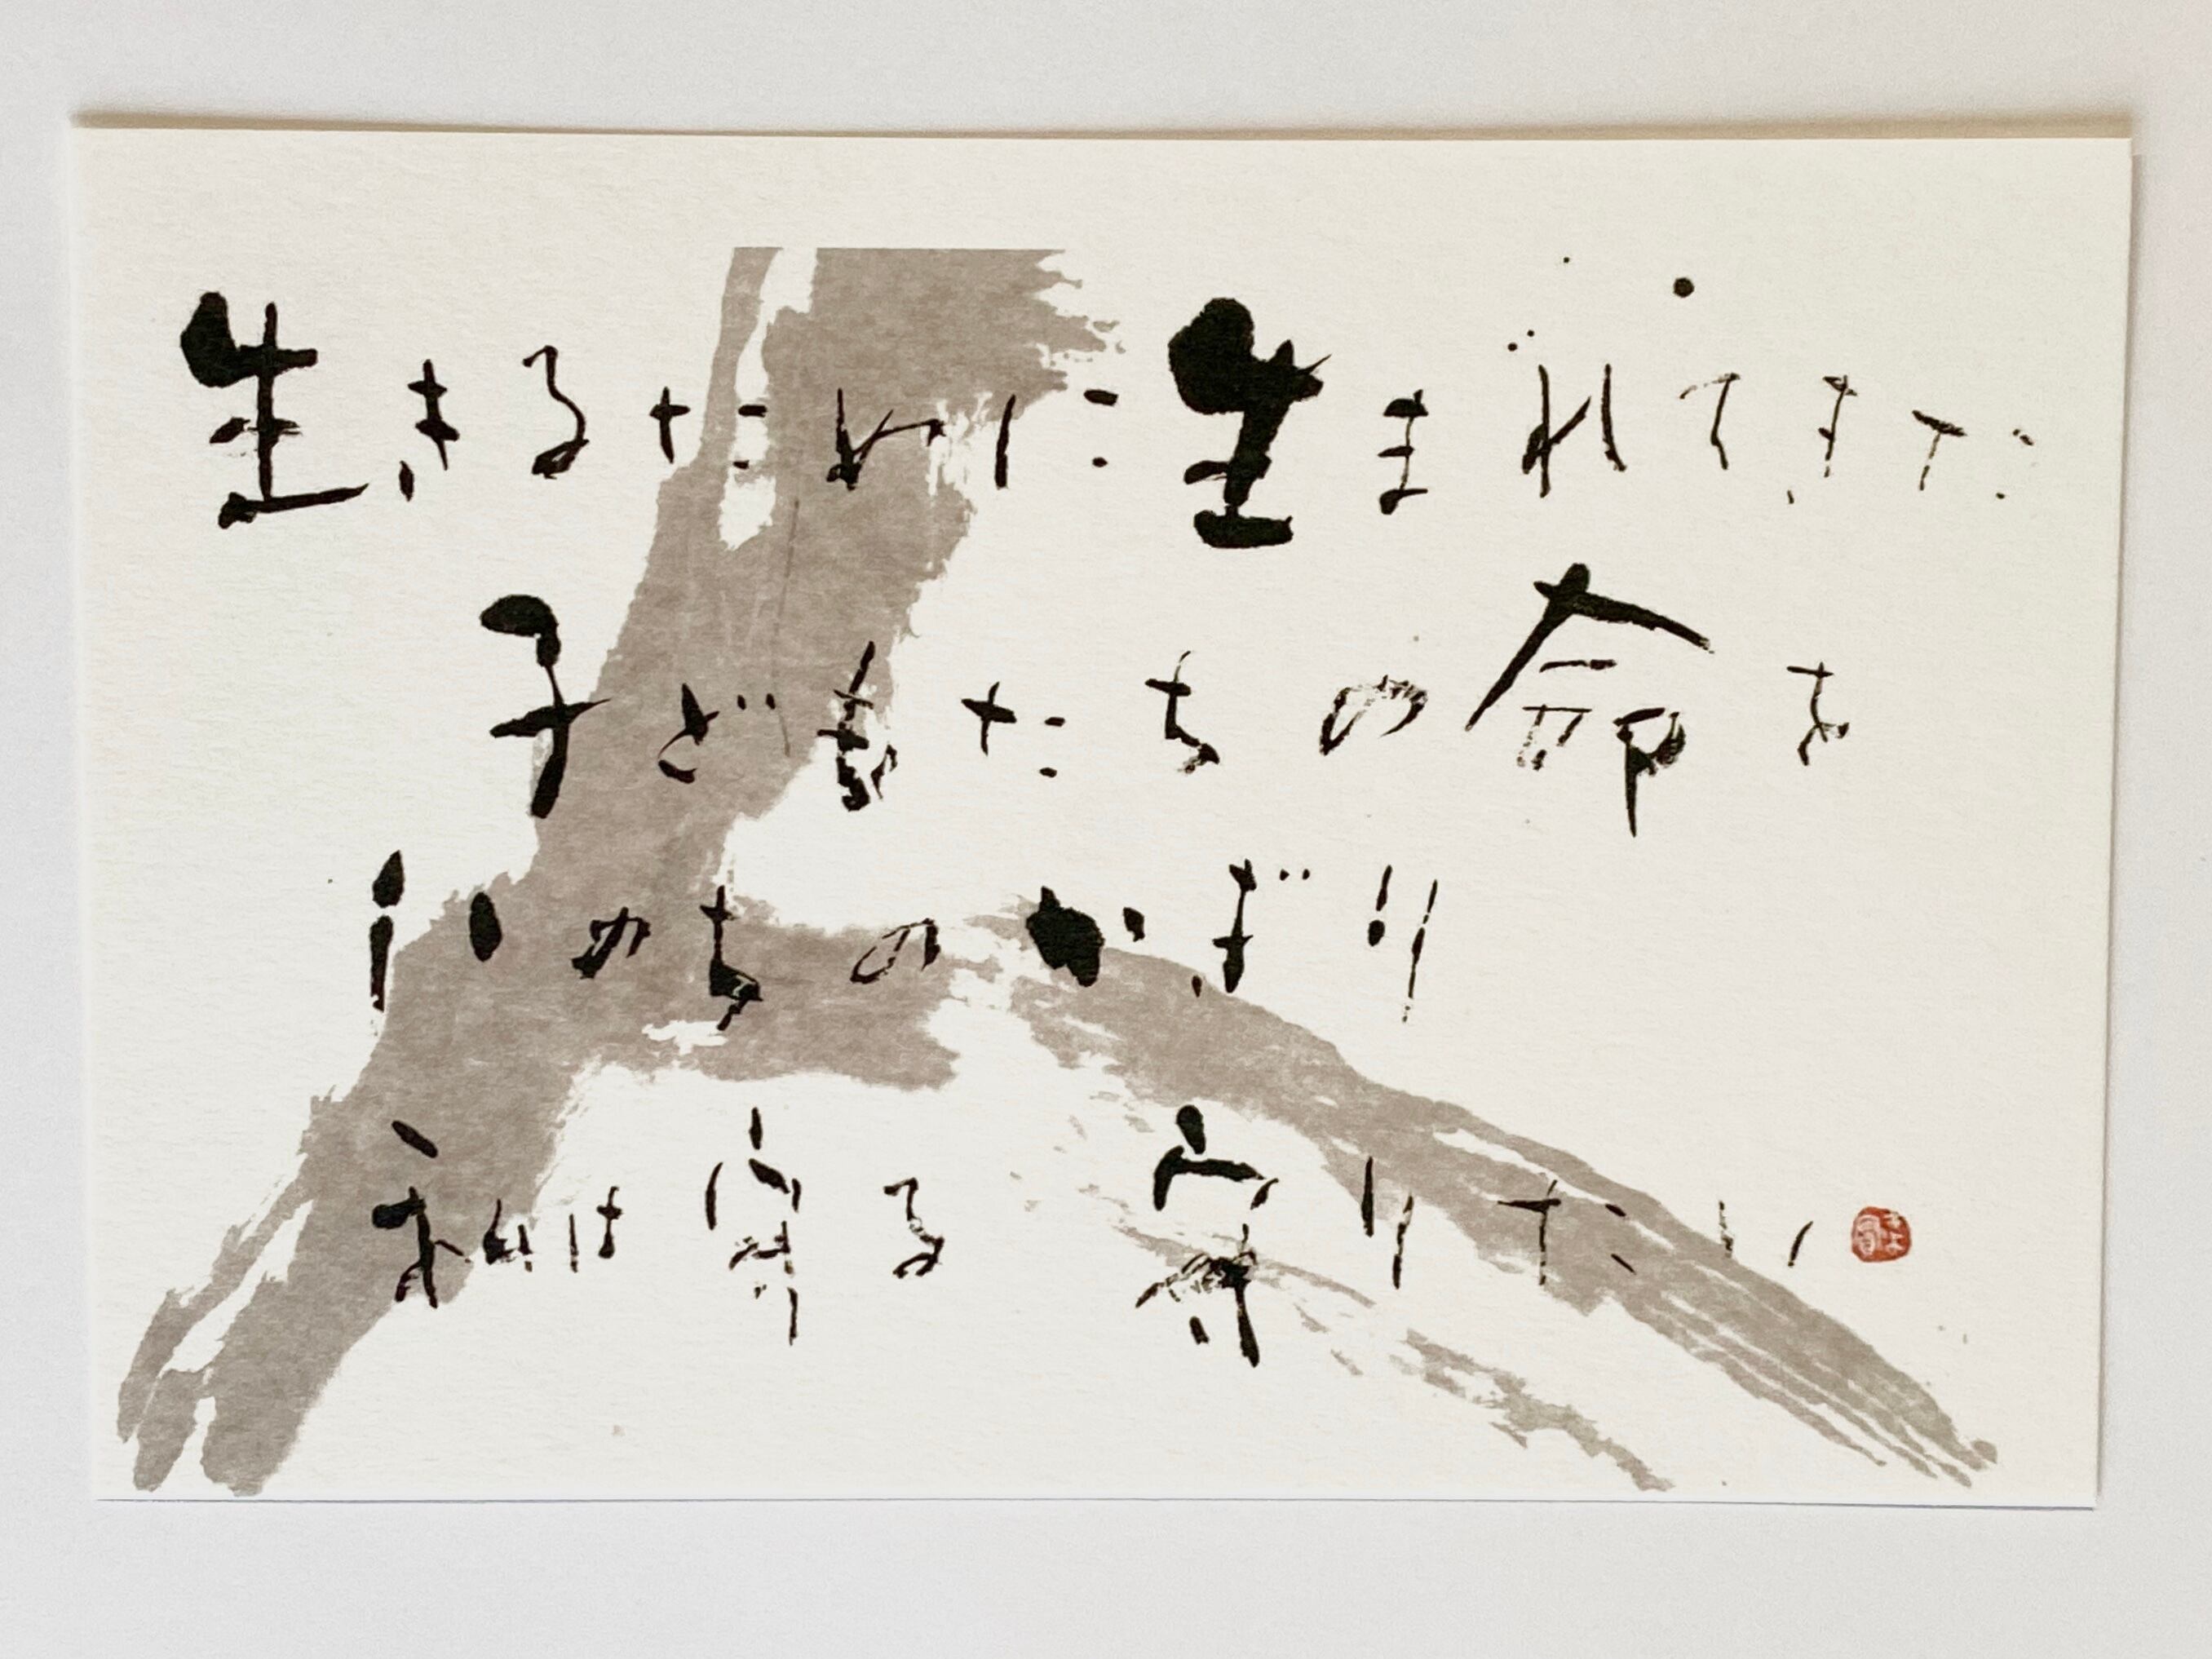 生きるために生まれてきた
子どもたちの命を
いのちのかぎり
私は守る 守りたい